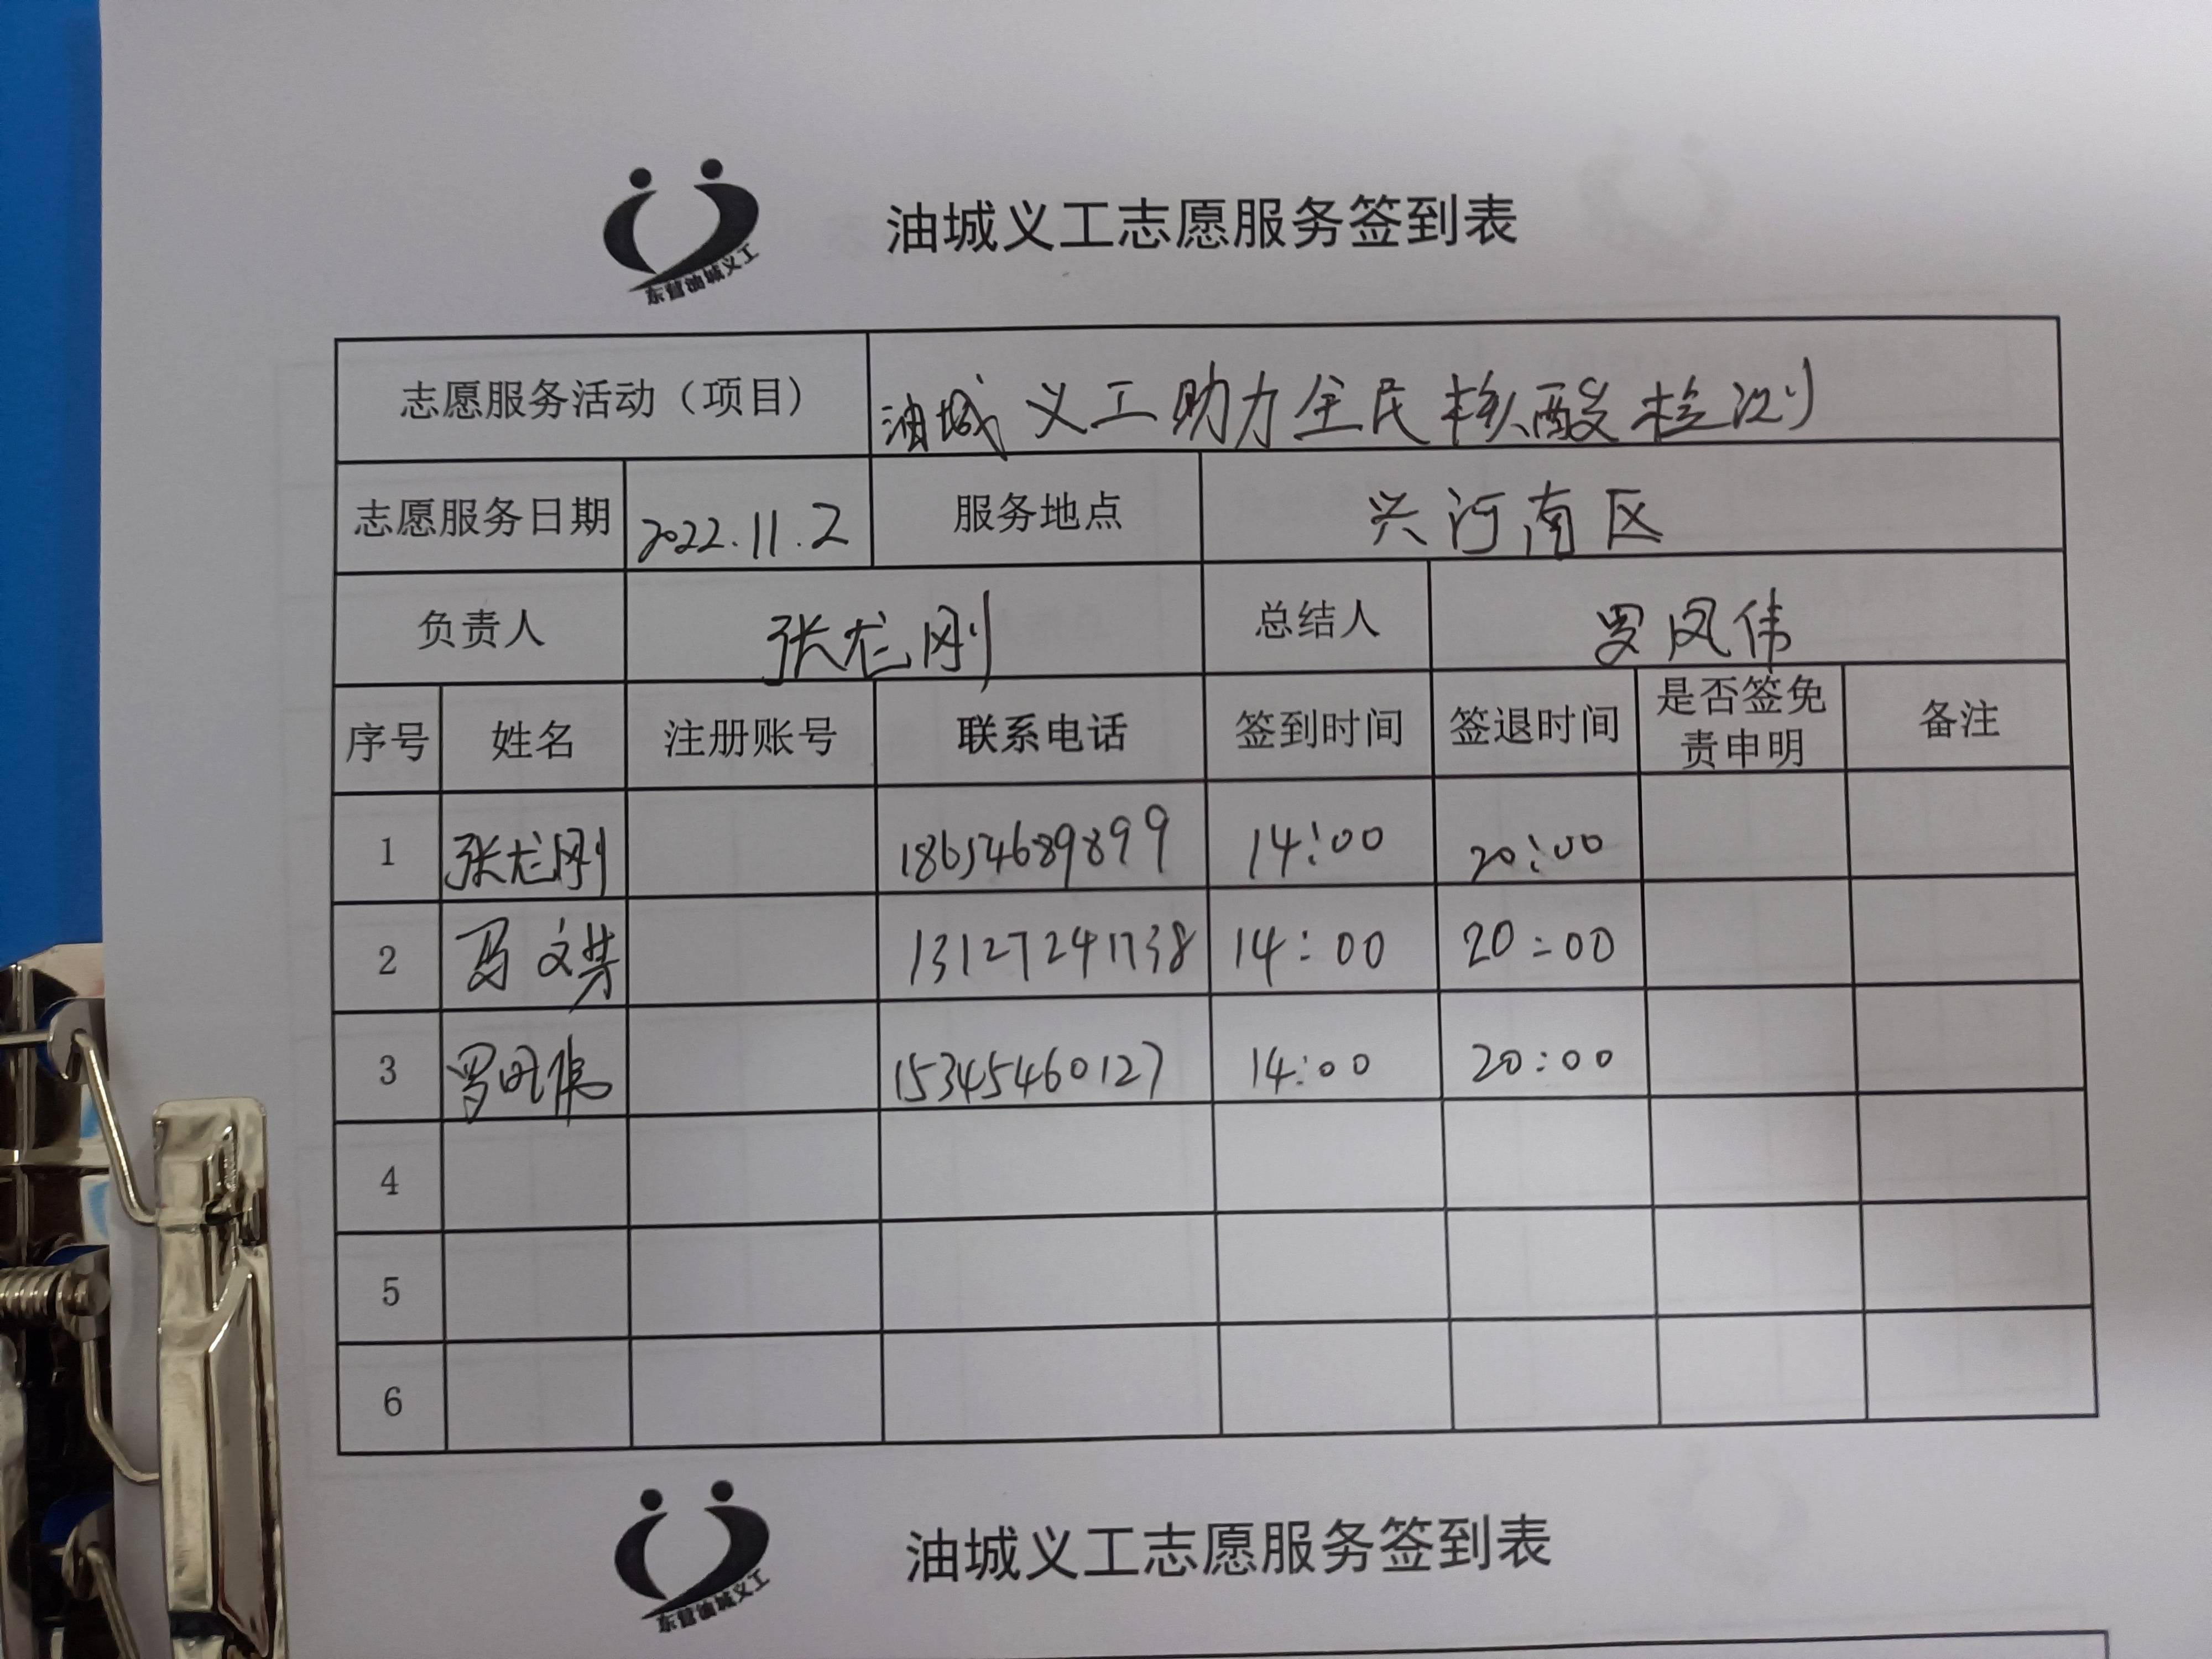 东营油城义工
油城义工志愿服务签到表
志愿服务活动（项目） 油城义工助力全民核酸检测
志愿服务日期 2022.11.2 服务地点 兴河南区
负责人 张龙刚 总结人 罗凤伟
序号 姓名 注册账号 联系电话 签到时间 签退时间 是否签免责申明 备注
1 张龙刚 18654689899 14:00 20:00
2 冯文芹 13127241738 14:00 20:00
3 罗凤伟 15345460127 14:00 20:00
4
5
6
东营油城义工
油城义工志愿服务签到表